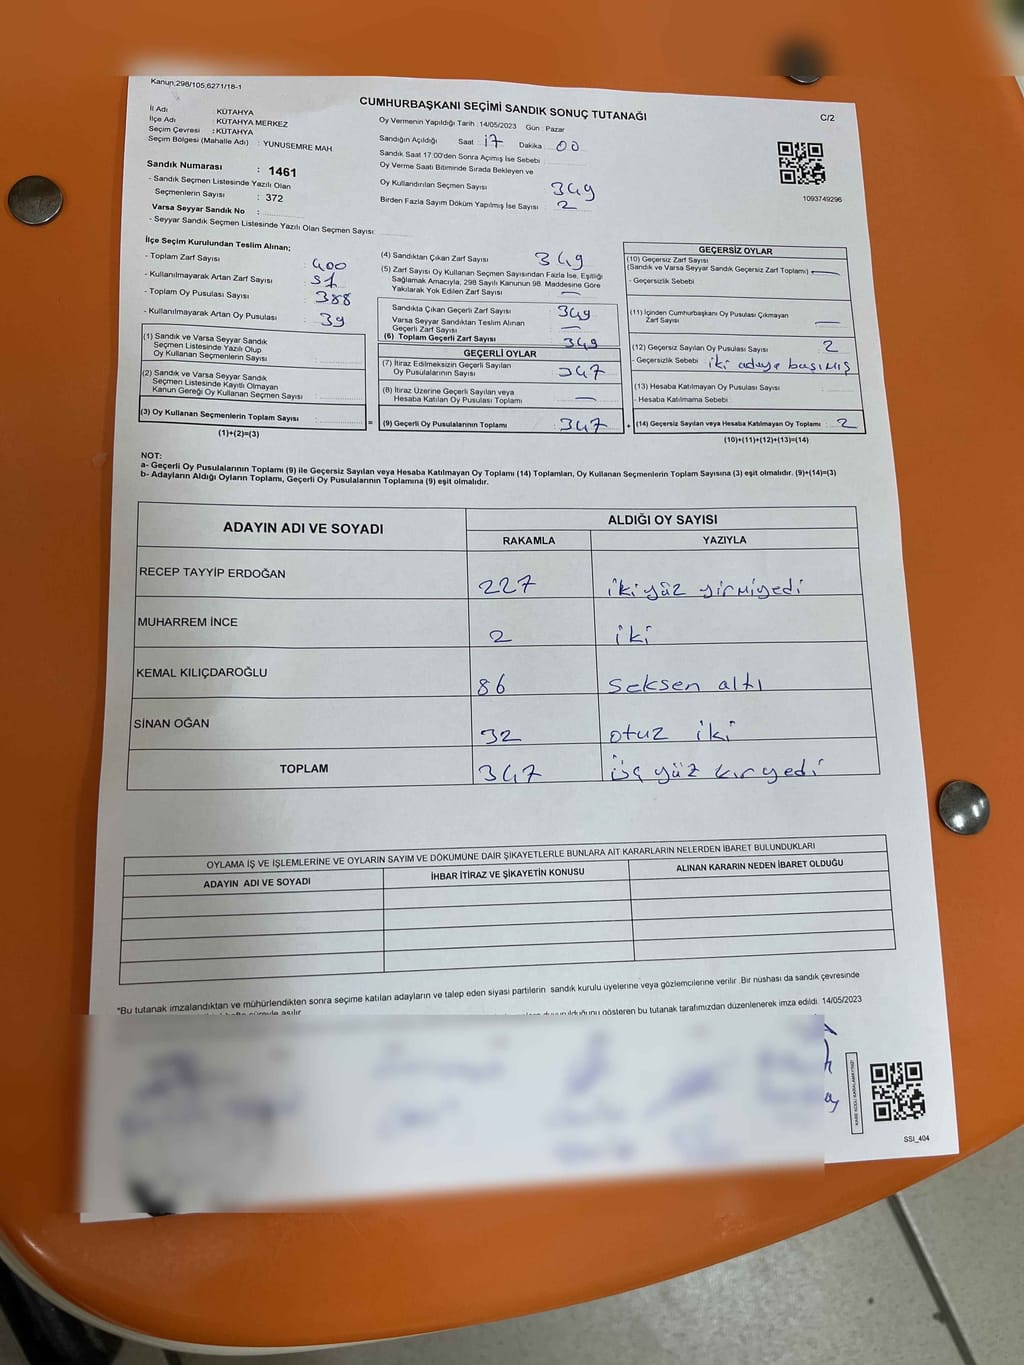 Kanun;298/105,6271/18-1
CUMHURBAŞKANI SEÇİMİ SANDIK SONUÇ TUTANAĞI
C/2
İl Adı : KÜTAHYA
İlçe Adı : KÜTAHYA MERKEZ
Seçim Çevresi : KÜTAHYA
Seçim Bölgesi (Mahalle Adı) : YUNUSEMRE MAH.
Sandık Numarası : 1461
- Sandık Seçmen Listesinde Yazılı Olan
Seçmenlerin Sayısı : 372
Varsa Seyyar Sandık No :
- Seyyar Sandık Seçmen Listesinde Yazılı Olan Seçmen Sayısı:
Oy Vermenin Yapıldığı Tarih : 14/05/2023 Gün : Pazar
Sandığın Açıldığı Saat : 17 Dakika : 00
Sandık Saat 17:00'den Sonra Açımış İse Sebebi :
Oy Verme Saati Bitiminde Sırada Bekleyen ve
Oy Kullandırılan Seçmen Sayısı 349
Birden Fazla Sayım Döküm Yapılmış İse Sayısı : 2
1093749296
İlçe Seçim Kurulundan Teslim Alınan;
- Toplam Zarf Sayısı : 400
- Kullanılmayarak Artan Zarf Sayısı : 51
- Toplam Oy Pusulası Sayısı : 388
- Kullanılmayarak Artan Oy Pusulası : 39
(1) Sandık ve Varsa Seyyar Sandık
Seçmen Listesinde Yazılı Olup
Oy Kullanan Seçmenlerin Sayısı :
(2) Sandık ve Varsa Seyyar Sandık
Seçmen Listesinde Kayıtlı Olmayan
Kanun Gereği Oy Kullanan Seçmen Sayısı :
(3) Oy Kullanan Seçmenlerin Toplam Sayısı :
(1)+(2)=(3)
(4) Sandıktan Çıkan Zarf Sayısı : 349
(5) Zarf Sayısı Oy Kullanan Seçmen Sayısından Fazla İse, Eşitliği
Sağlamak Amacıyla, 298 Sayılı Kanunun 98. Maddesine Göre
Yakılarak Yok Edilen Zarf Sayısı : —
Sandıkta Çıkan Geçerli Zarf Sayısı : 349
Varsa Seyyar Sandıktan Teslim Alınan
Geçerli Zarf Sayısı : —
(6) Toplam Geçerli Zarf Sayısı : 349
GEÇERLİ OYLAR
(7) İtiraz Edilmeksizin Geçerli Sayılan
Oy Pusulalarının Sayısı : 347
(8) İtiraz Üzerine Geçerli Sayılan veya
Hesaba Katılan Oy Pusulası Toplamı : —
= (9) Geçerli Oy Pusulalarının Toplamı : 347
GEÇERSİZ OYLAR
(10) Geçersiz Zarf Sayısı
(Sandık ve Varsa Seyyar Sandık Geçersiz Zarf Toplamı) : —
- Geçersizlik Sebebi :
(11) İçinden Cumhurbaşkanı Oy Pusulası Çıkmayan
Zarf Sayısı : —
(12) Geçersiz Sayılan Oy Pusulası Sayısı : 2
- Geçersizlik Sebebi : iki adaya basımış
(13) Hesaba Katılmayan Oy Pusulası Sayısı :
- Hesaba Katılmama Sebebi :
+ (14) Geçersiz Sayılan veya Hesaba Katılmayan Oy Toplamı : 2
(10)+(11)+(12)+(13)=(14)
NOT:
a- Geçerli Oy Pusulalarının Toplamı (9) ile Geçersiz Sayılan veya Hesaba Katılmayan Oy Toplamı (14) Toplamları, Oy Kullanan Seçmenlerin Toplam Sayısına (3) eşit olmalıdır. (9)+(14)=(3)
b- Adayların Aldığı Oyların Toplamı, Geçerli Oy Pusulalarının Toplamına (9) eşit olmalıdır.
ADAYIN ADI VE SOYADI ALDIĞI OY SAYISI
RAKAMLA YAZIYLA
RECEP TAYYİP ERDOĞAN 227 iki yüz yirmiyedi
MUHARREM İNCE 2 iki
KEMAL KILIÇDAROĞLU 86 seksen altı
SİNAN OĞAN 32 otuz iki
TOPLAM 347 üç yüz kıryedi
OYLAMA İŞ VE İŞLEMLERİNE VE OYLARIN SAYIM VE DÖKÜMÜNE DAİR ŞİKAYETLERLE BUNLARA AİT KARARLARIN NELERDEN İBARET BULUNDUKLARI
ADAYIN ADI VE SOYADI İHBAR İTİRAZ VE ŞİKAYETİN KONUSU ALINAN KARARIN NEDEN İBARET OLDUĞU
*Bu tutanak imzalandıktan ve mühürlendikten sonra seçime katılan adayların ve talep eden siyasi partilerin sandık kurulu üyelerine veya gözlemcilerine verilir .Bir nüshası da sandık çevresinde
gösteren bu tutanak tarafımızdan düzenlenerek imza edildi. 14/05/2023
SSI_404